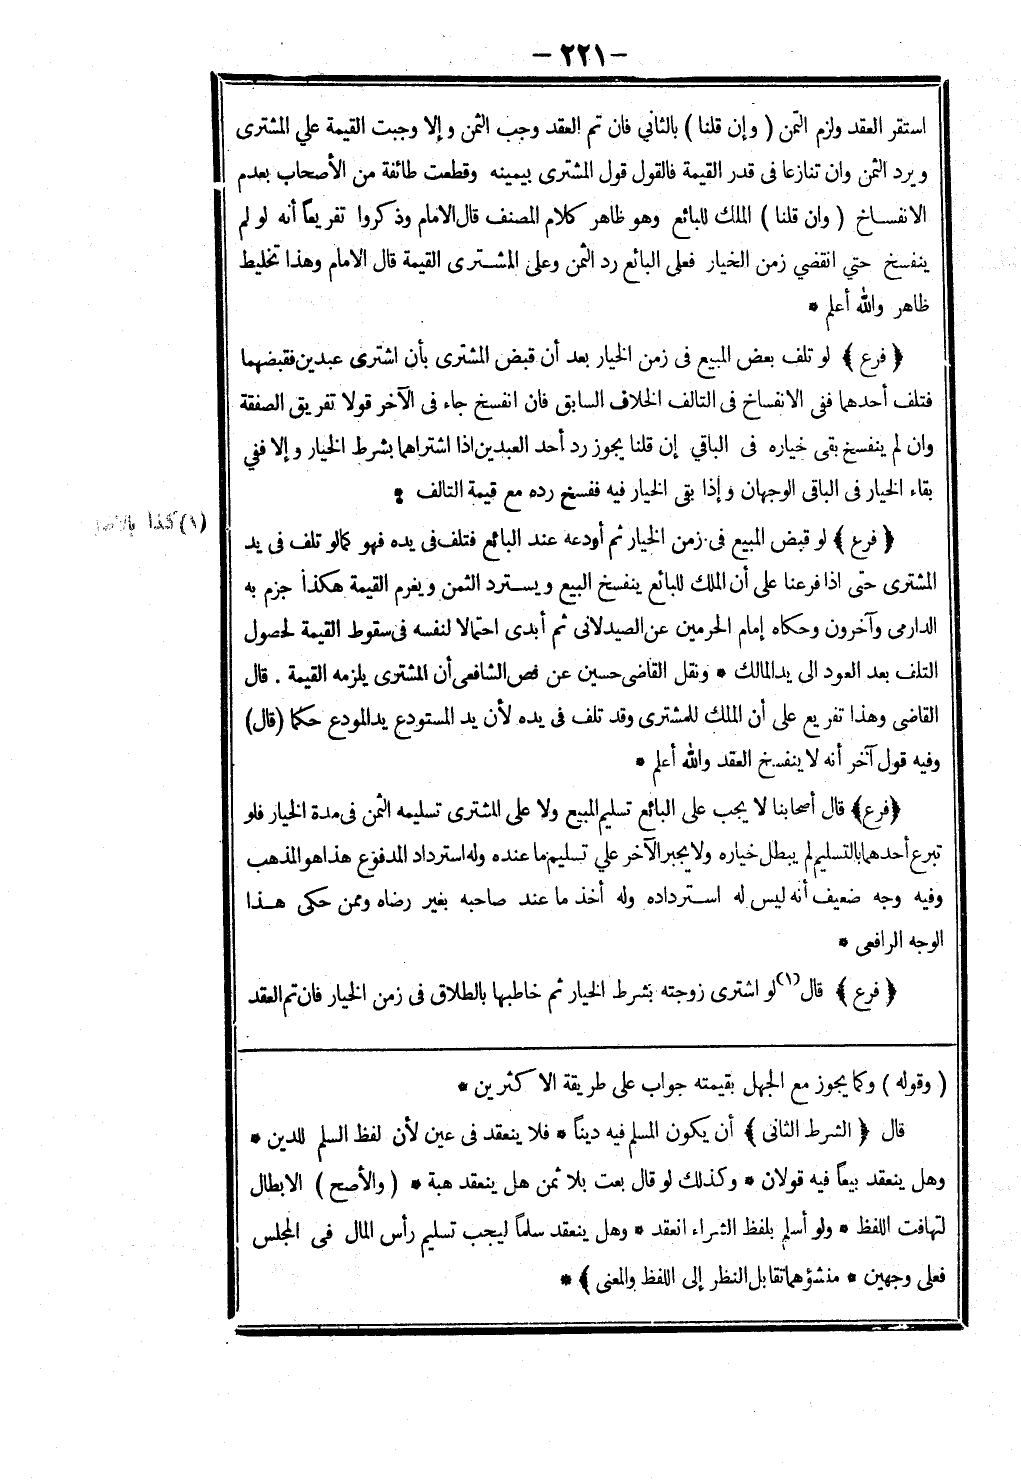 — ٢٢١ —
استقر العقد ولزم الثمن ( وإن قلنا ) بالثاني فان تم العقد وجب الثمن وإلا وجبت القيمة علي المشترى
ويرد الثمن وان تنازعا فى قدر القيمة فالقول قول المشترى بيمينه وقطعت طائفة من الأصحاب بعدم
الانفساخ ( وان قلنا ) الملك للبائع وهو ظاهر كلام المصنف قال الامام وذكروا تفريعاً أنه لو لم
ينفسخ حتي انقضي زمن الخيار فعلى البائع رد الثمن وعلى المشترى القيمة قال الامام وهذا تخليط
ظاهر والله أعلم *
﴿ فرع ﴾ لو تلف بعض المبيع فى زمن الخيار بعد أن قبض المشترى بأن اشترى عبدين فقبضهما
فتلف أحدهما ففى الانفساخ فى التالف الخلاف السابق فان انفسخ جاء فى الآخر قولا تفريق الصفقة
وان لم ينفسخ بقى خياره فى الباقي إن قلنا يجوز رد أحد العبدين اذا اشتراهما بشرط الخيار وإلا ففي
بقاء الخيار فى الباقى الوجهان وإذا بقى الخيار فيه ففسخ رده مع قيمة التالف *
﴿ فرع ﴾ لو قبض المبيع فى زمن الخيار ثم أودعه عند البائع فتلف فى يده فهو كما لو تلف فى يد
المشترى حتى اذا فرعنا على أن الملك للبائع ينفسخ البيع ويسترد الثمن ويغرم القيمة هكذا جزم به
الدارمى وآخرون وحكاه إمام الحرمين عن الصيدلانى ثم أبدى احتمالا لنفسه فى سقوط القيمة لحصول
التلف بعد العود الى يد المالك * ونقل القاضى حسين عن نص الشافعى أن المشترى يلزمه القيمة . قال
القاضى وهذا تفريع على أن الملك للمشترى وقد تلف فى يده لأن يد المستودع يد المودع حكما (قال)
وفيه قول آخر أنه لا ينفسخ العقد والله أعلم *
﴿فرع﴾ قال أصحابنا لا يجب على البائع تسليم المبيع ولا على المشترى تسليمه الثمن فى مدة الخيار فلو
تبرع أحدهما بالتسليم لم يبطل خياره ولا يجبر الآخر علي تسليم ما عنده وله استرداد المدفوع هذا هو المذهب
وفيه وجه ضعيف أنه ليس له استرداده وله أخذ ما عند صاحبه بغير رضاه وممن حكى هذا
الوجه الرافعى *
﴿ فرع ﴾ قال (١) لو اشترى زوجته بشرط الخيار ثم خاطبها بالطلاق فى زمن الخيار فان تم العقد
(١) كذا بالاصل
( وقوله ) وكما يجوز مع الجهل بقيمته جواب على طريقة الاكثرين *
قال ﴿ الشرط الثانى ﴾ أن يكون المسلم فيه ديناً * فلا ينعقد فى عين لأن لفظ السلم للدين *
وهل ينعقد بيعاً فيه قولان * وكذلك لو قال بعت بلا ثمن هل ينعقد هبة * ( والأصح ) الابطال
لتهافت اللفظ * ولو أسلم بلفظ الشراء انعقد * وهل ينعقد سلماً ليجب تسليم رأس المال فى المجلس
فعلى وجهين * منشؤهما تقابل النظر إلى اللفظ والمعنى ﴾ *